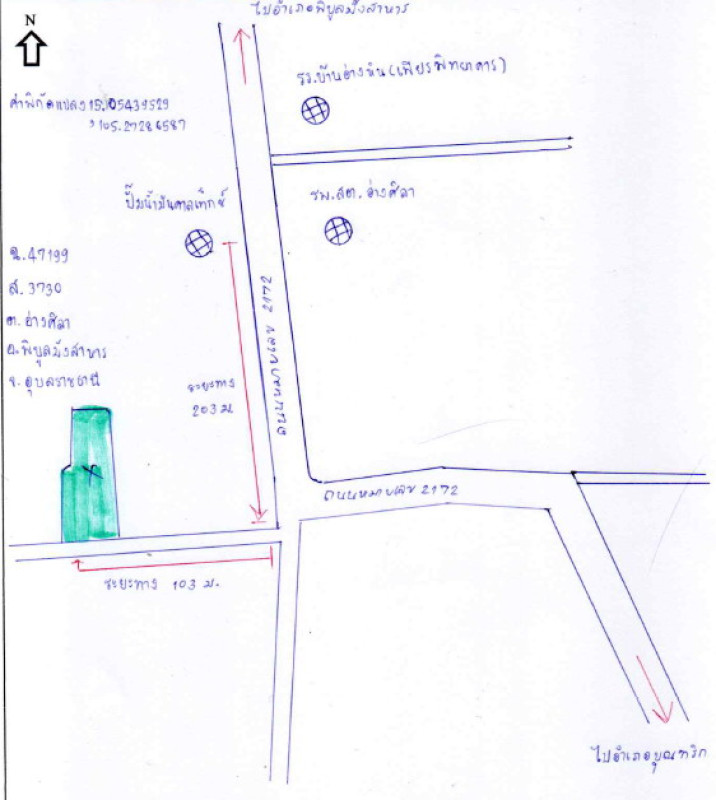 ไปอำเภอพิบูลมังสาหาร
N
รร.บ้านอ่างหิน(เพียรพิทยาคาร)
ค่าพิกัดแปลง 15.105439529
, 105.27286587
ปั๊มน้ำมันคาลเท็กซ์
รพ.สต. อ่างศิลา
ฉ.47199
ส. 3730
ต. อ่างศิลา
อ.พิบูลมังสาหาร
จ. อุบลราชธานี
ถนนหมายเลข 2172
ระยะทาง
203 ม.
ถนนหมายเลข 2172
ระยะทาง 103 ม.
ไปอำเภอบุณฑริก